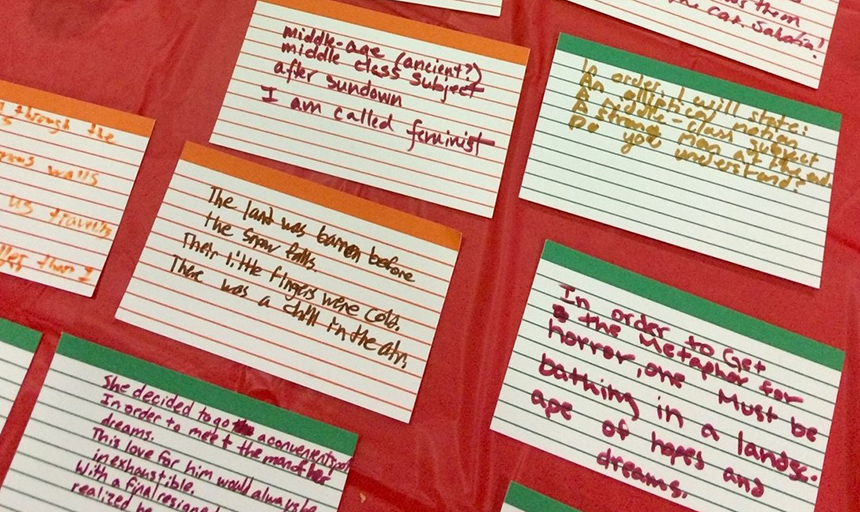 them
the cat. Sahatia!
middle-age (ancient?)
middle class subject
after sundown
I am called feminist
In order, I will state:
An elliptical nation
A middle-class subject
A strange man at the end.
Do you understand?
through the
walls
us travels
than I
The land was barren before
the snow falls.
Their little fingers were cold.
There was a chill in the air.
In order to Get
the Metaphor for
horror, one Must be
bathing in a landsc-
ape of hopes and
dreams.
She decided to go to a convenient port
In order to meet the man of her
dreams.
This love for him would always be
inexhaustible.
With a final resigned
realized he